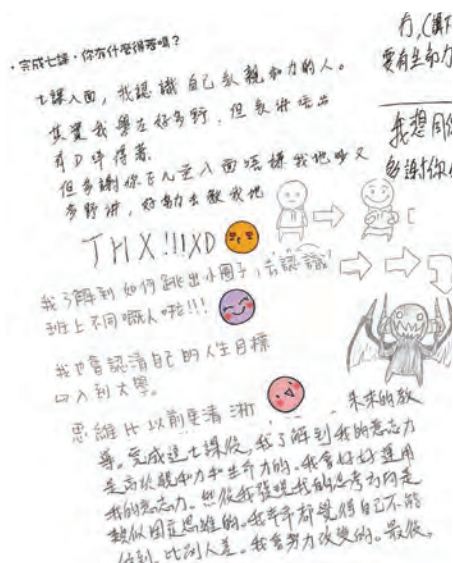 ·完成七課，你有什麼得著嗎？
七課入面，我認識自己系親和力的人。
其實我學左好多野，但系講唔出
有D咩得著。
但多謝你
多野講，好努力去教我地
THX!!!XD
我了解到如何跳出小圈子，去認識
班上不同嘅人啦!!!
我也會認清自己的人生目標
入到大學。
思維比以前更清淅
未來的教
導。完成這七課後，我了解到我的意志力
是高於親和力和生命力的。我會好好運用
我的意志力。然後我發現我的思考方向是
類似固定思維的。我平時都覺得自己不能
做到，比別人差。我會努力改變的。最後，
有
要有生命力
我想用
多謝你